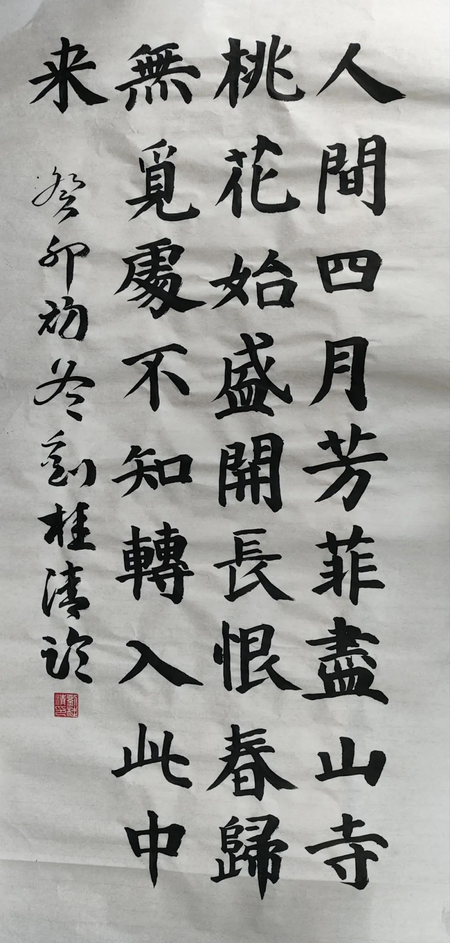 人間四月芳菲盡山寺
桃花始盛開長恨春歸
無覓處不知轉入此中
来
癸卯初冬劉桂清